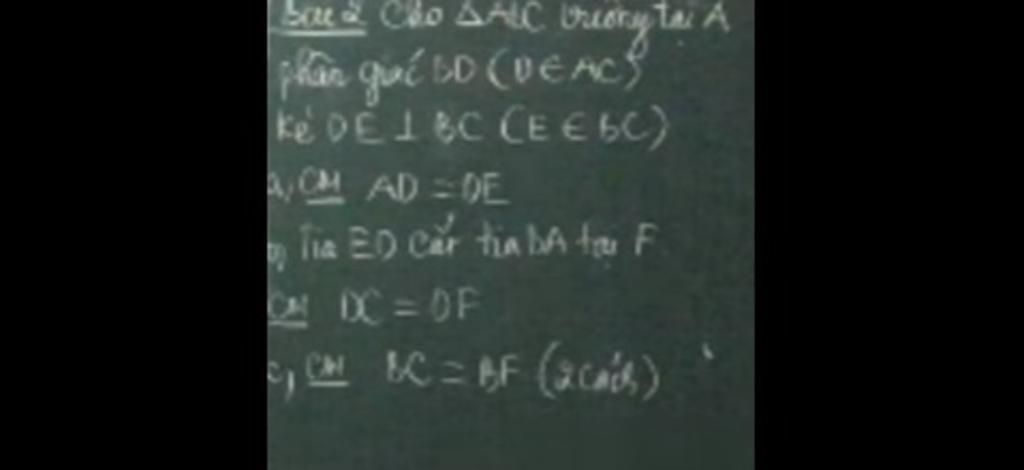 Bài 2 Cho △ABC vuông tại A
phân giác BD (D ∈ AC)
kẻ DE ⊥ BC (E ∈ BC)
a, CM AD = DE
b, Tia ED cắt tia BA tại F
CM DC = DF
c, CM BC = BF (2 cách)